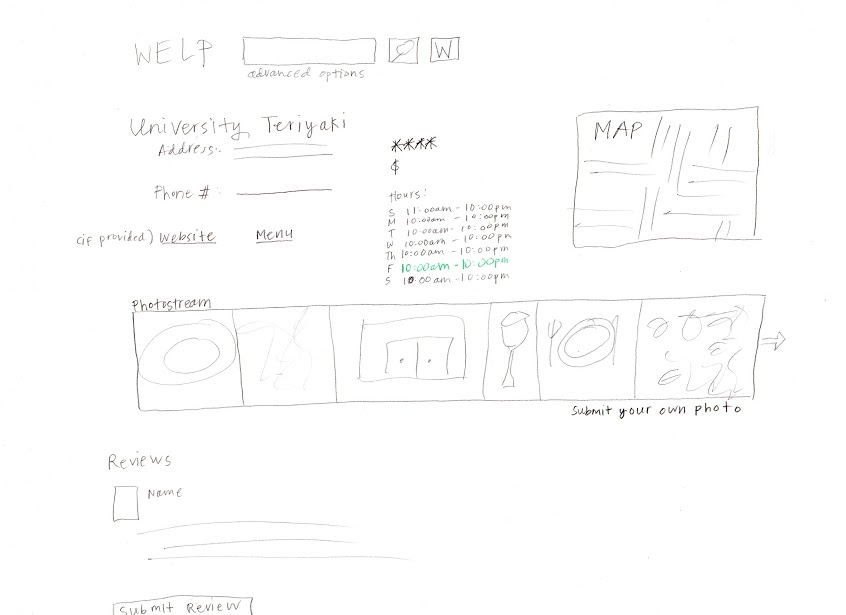 WELP W
advanced options
University Teriyaki
Address:
****
$
MAP
Phone #:
(if provided) Website Menu
Hours:
S 11:00am - 10:00pm
M 10:00am - 10:00pm
T 10:00am - 10:00pm
W 10:00am - 10:00pm
Th 10:00am - 10:00pm
F 10:00am - 10:00pm
S 10:00am - 10:00pm
Photostream
Submit your own photo
Reviews
Name
Submit Review